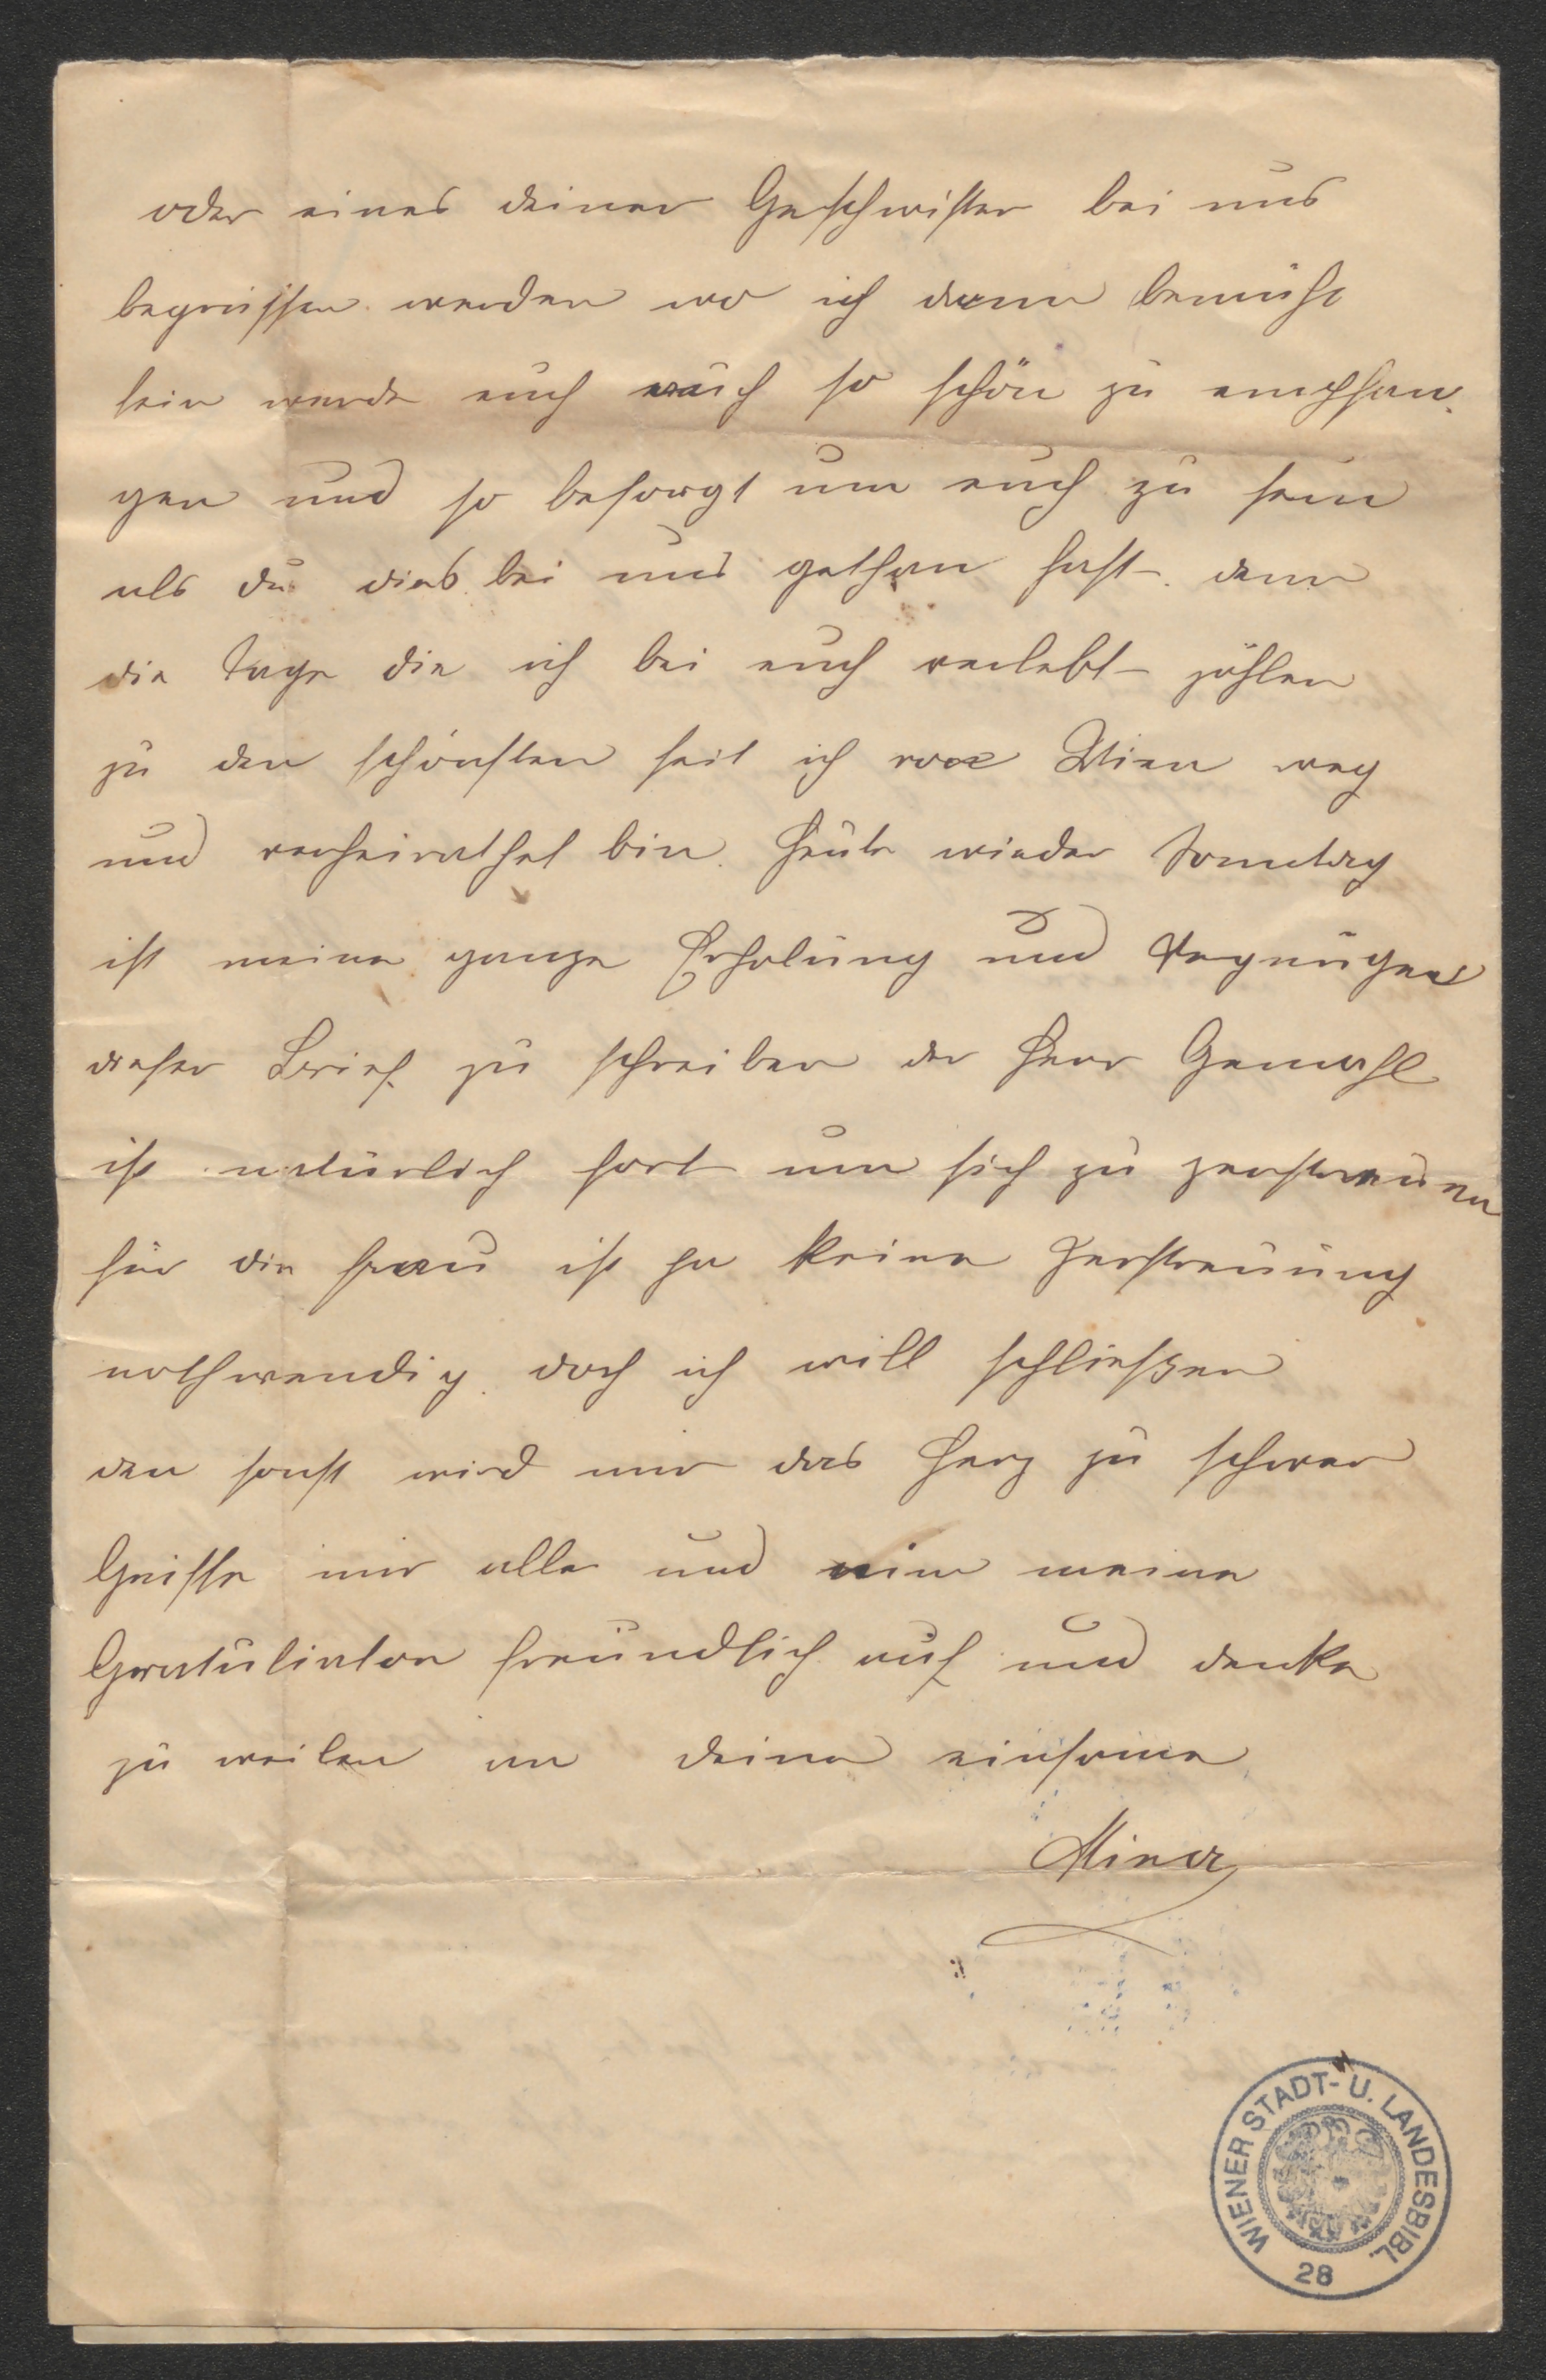 oder eines deiner Geschwister bei uns
begrüssen werden wo ich dann bemüht
sein werde euch auch so schön zu empfan-
gen und so besorgt um euch zu sein
als du dies bei uns gethan hast. denn
die Tage die ich bei euch verlebt zählen
zu den schönsten seit ich von Wien weg
und verheirathet bin. Heute wieder Sonntag
ist meine ganze Erholung und Vergnügen
dieser Brief zu schreiben der Herr Gemahl
ist natürlich fort um sich zu zerstreuen
für die Frau ist ja keine Zerstreuung
nothwendig. doch ich will schließen
den sonst wird mir das Herz zu schwer
Grüsse mir alle und nim meine
Gratuliaton freundlich auf und denke
zu weilen an deine einsame
Mina
WIENER STADT- U. LANDESBIBL.
28